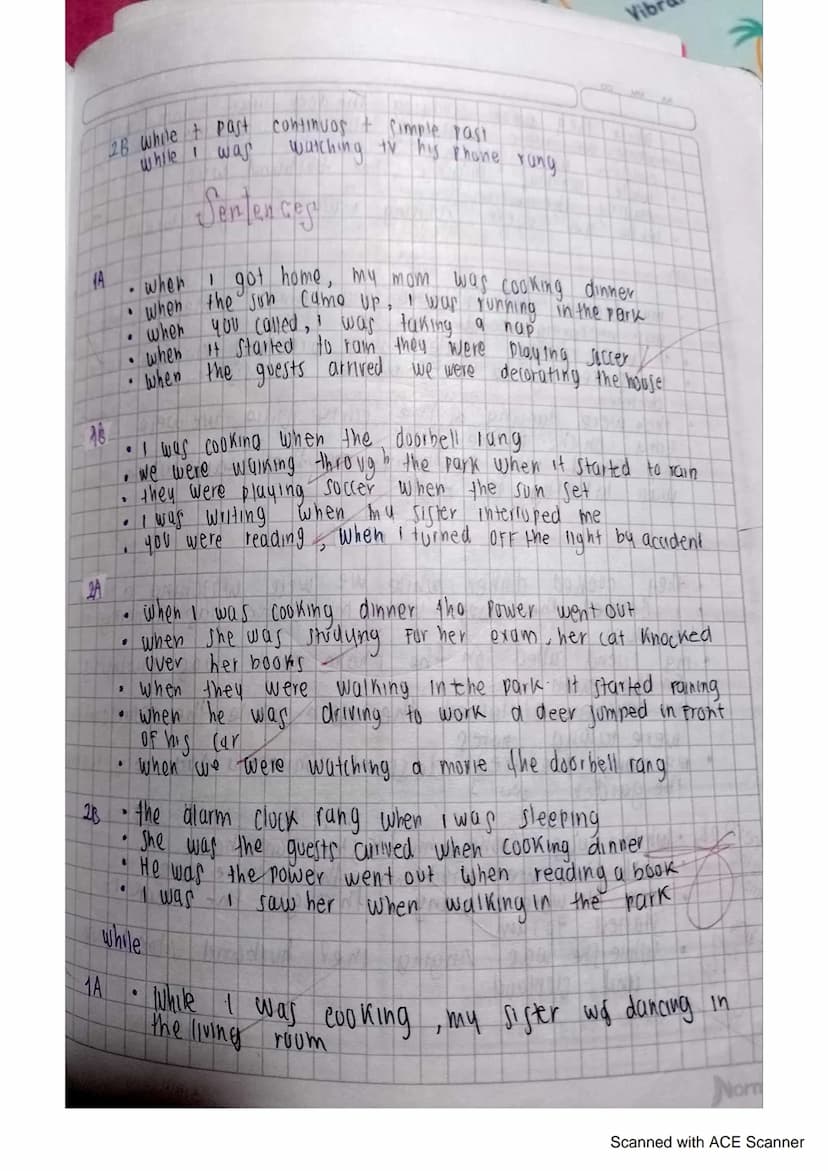 Vibra
2B while + past continuos + simple past
while i was watching tv his phone rang
Sentences
1A . when i got home, my mom was cooking dinner
. when the sun came up, i was running in the park
. when you called, i was taking a nap
. when it started to rain they were playing soccer
. when the guests arrived we were decorating the house
1B . I was cooking when the doorbell rang
. we were walking through the park when it started to rain
. they were playing soccer when the sun set
. I was writing when my sister interruped me
. you were reading, when i turned off the light by accident
2A
. when I was cooking dinner the power went out
. when she was studyung for her exam, her cat knocked
over her books
. when they were walking in the park it started raining
. when he was driving to work a deer jumped in front
of his car
. when we were watching a movie the doorbell rang
2B . the alarm clock rang when i was sleeping
. She was the guests arrived when cooking dinner
. He was the power went out when reading a book
. I was i saw her when walking in the park
while
1A . While I was cooking, my sister was dancing in
the living room
Norm
Scanned with ACE Scanner